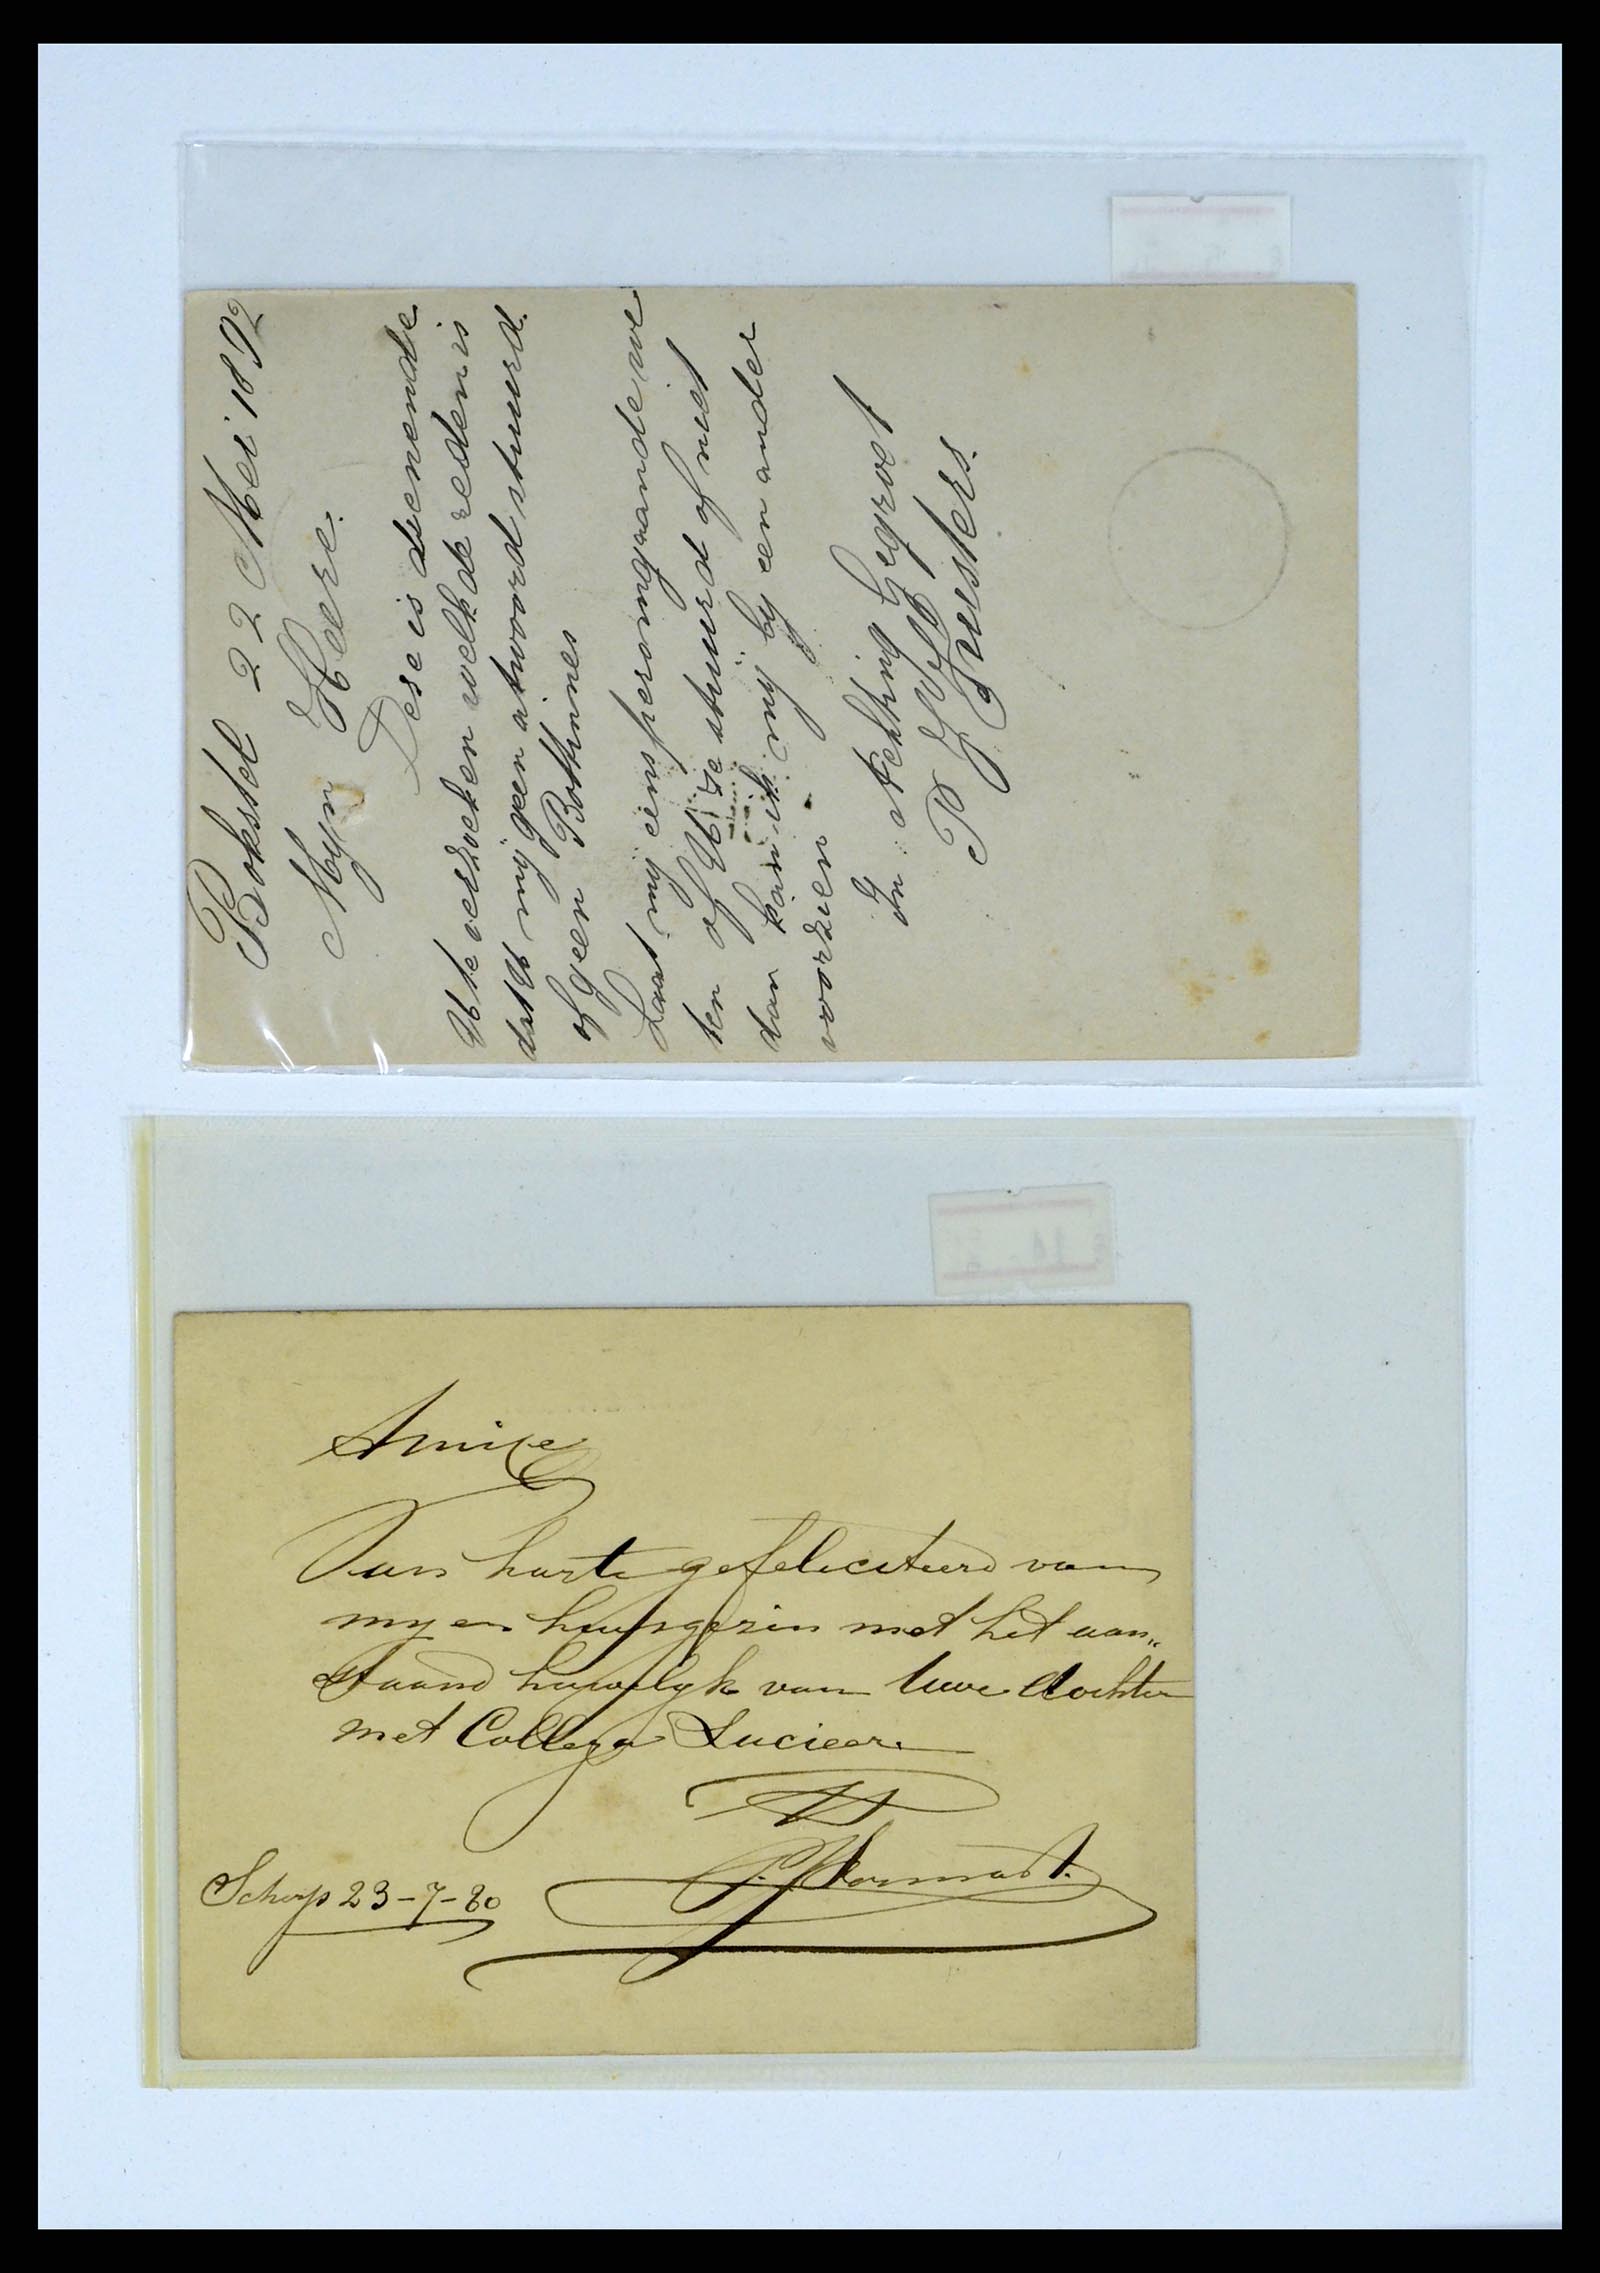 Bokstel 22 Mei 1892
Myn Heere.
Dese is dienende
U te verzoeken welkde redenis
dat U mij geen atwoord stuurd.
of geen Bottinnes
Laat mij eens per omgaande we
ten of U Ze stuurd of niet
dan kan ik mij by een ander
voorzien
In Achting Gegroet
P
Amice
Van harte gefeliciteerd van
my en huisgezin met het aan„
staand huwelyk van Uwe dochter
met Collega Lucieer
Scherp 23-7-80